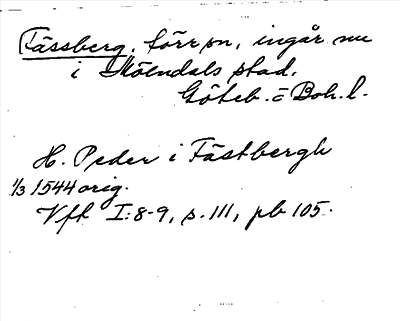 Fässberg, förr sn, ingår nu
i Mölndals stad.
Göteb. o Boh. l.
H. Peder i Fästbergh
1/3 1544 orig.
Vfh I:8-9, s. 111, pb 105.